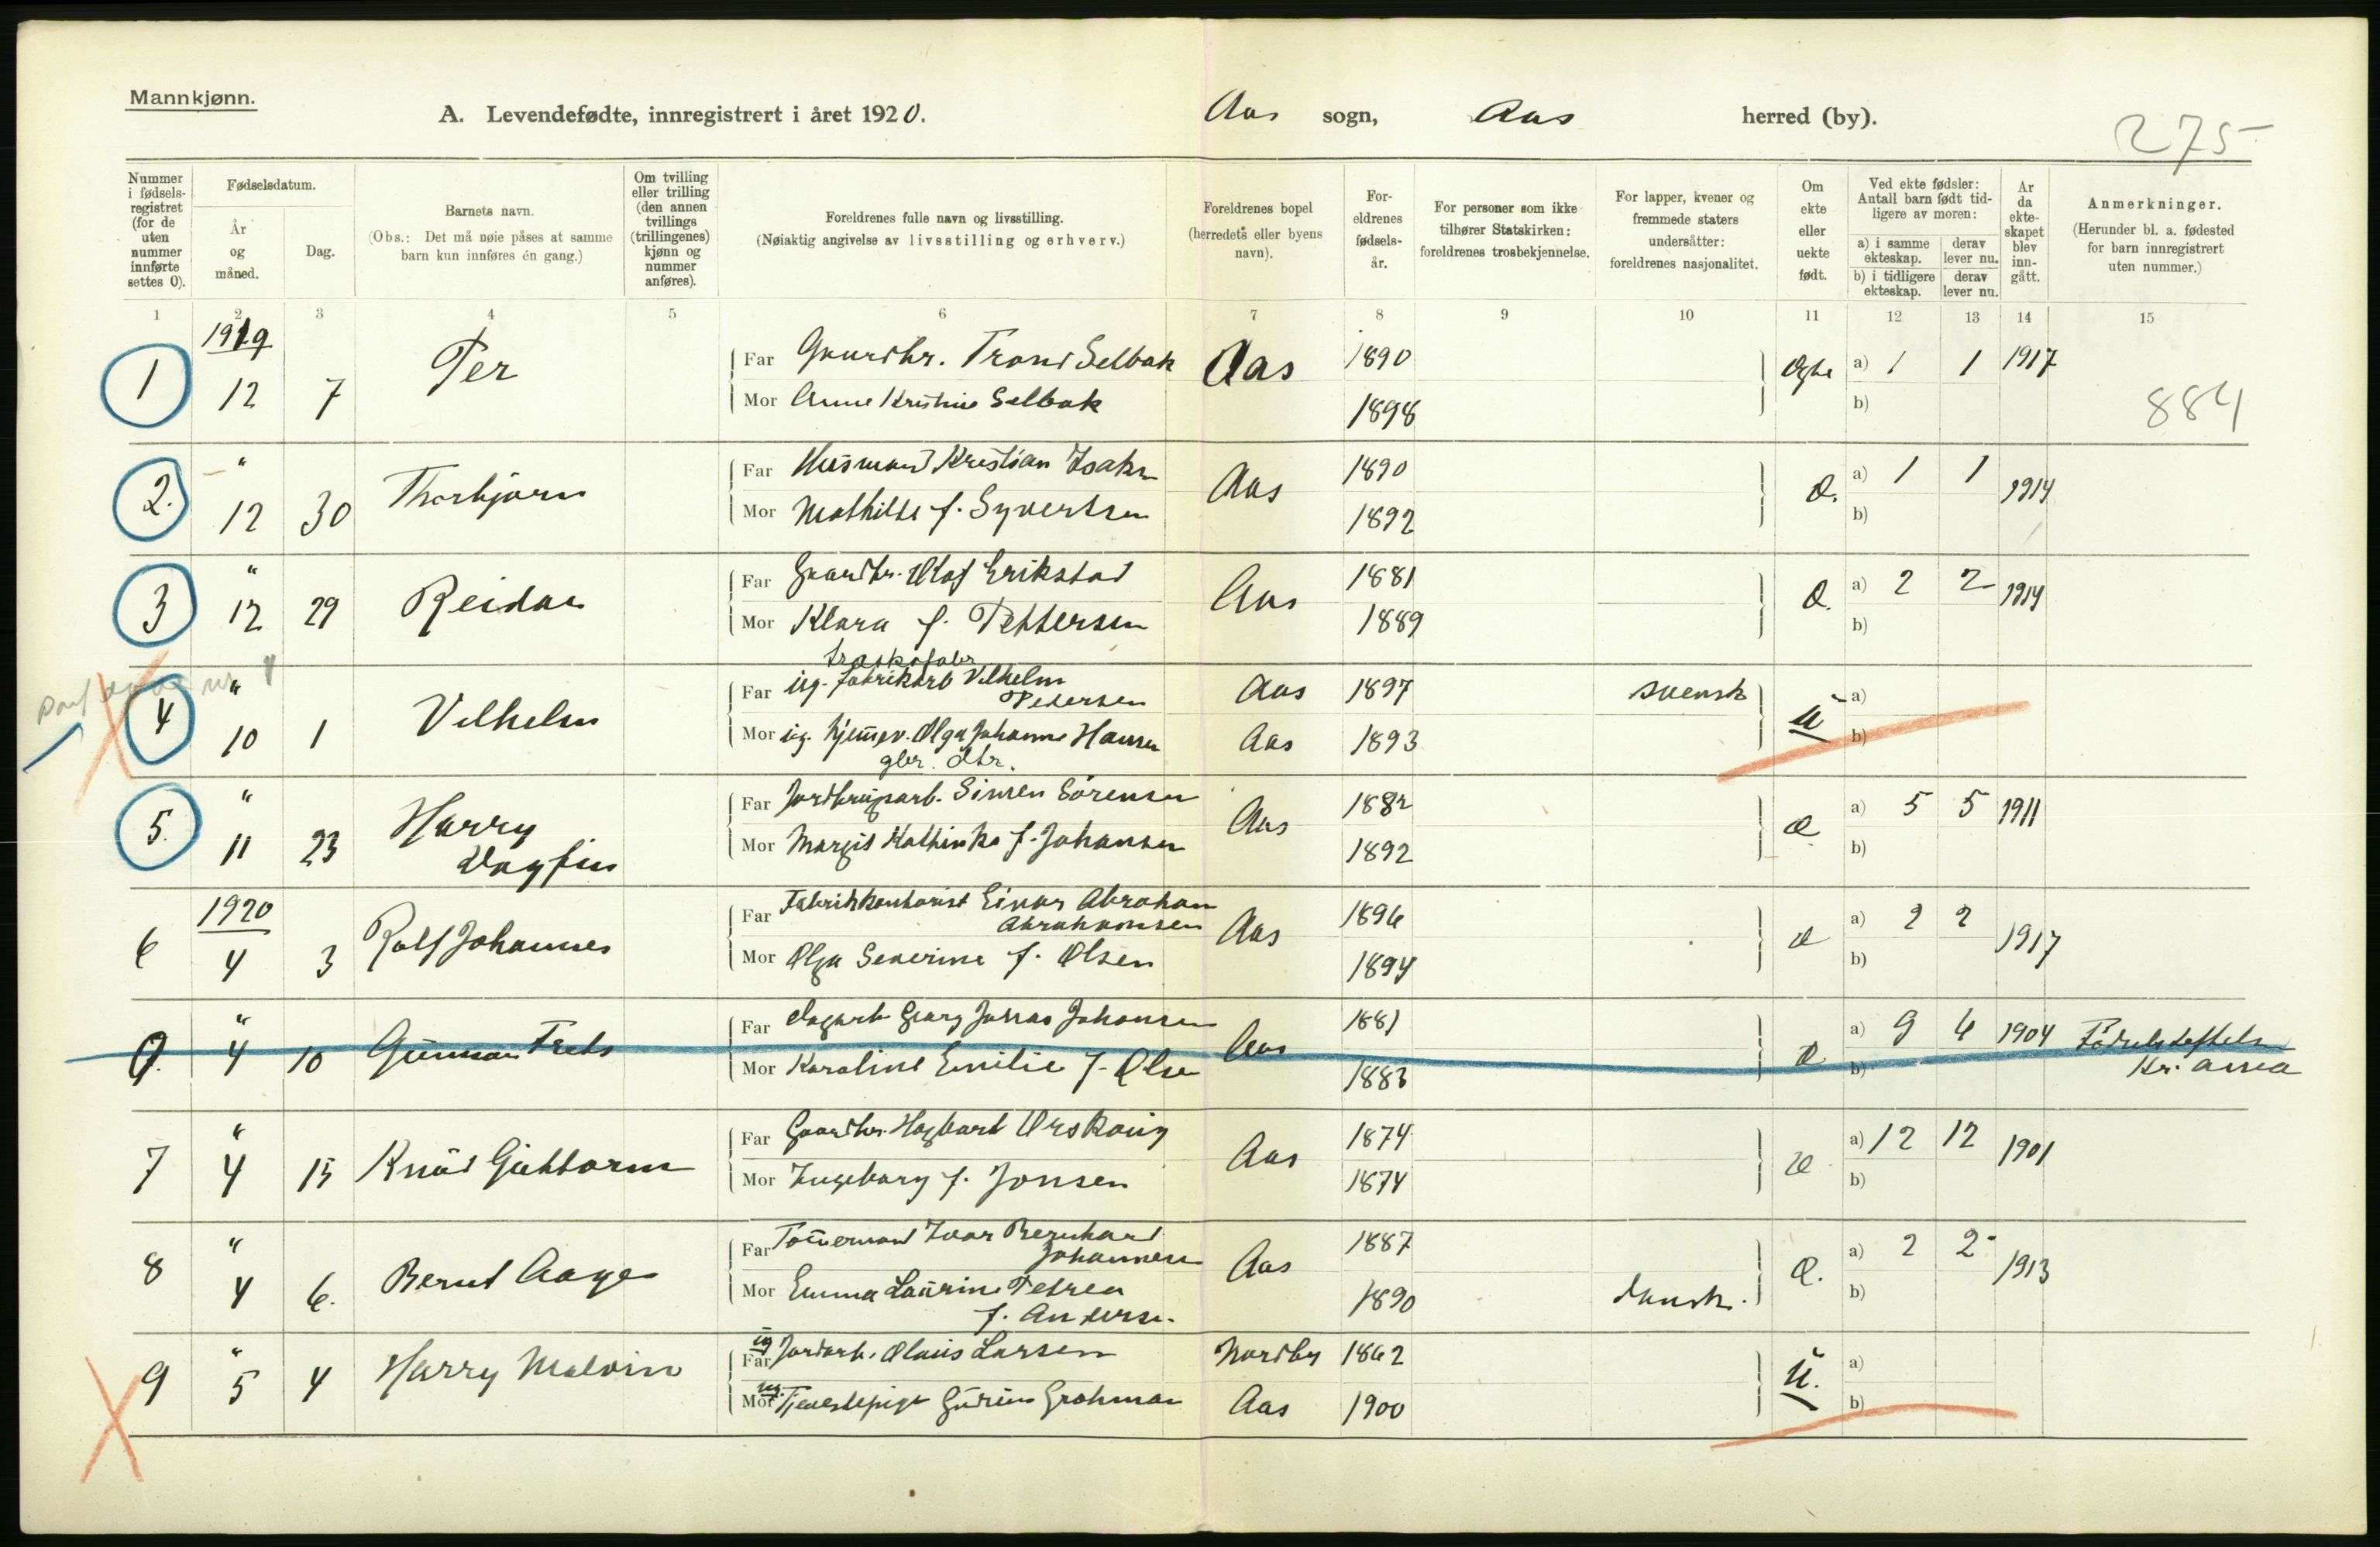 Mannkjønn.
A. Levendefødte, innregistrert i året 1920. Aas sogn, Aas herred (by).
275
Nummer i fødsels-registret (for de uten nummer innførte settes 0).
Fødselsdatum.
År og måned.
Dag.
Barnets navn.
(Obs.: Det må nøie påses at samme barn kun innføres én gang.)
Om tvilling eller trilling (den annen tvillings (trillingenes) kjønn og nummer anføres).
Foreldrenes fulle navn og livsstilling.
(Nøiaktig angivelse av livsstilling og erhverv.)
Foreldrenes bopel (herredets eller byens navn).
For-eldrenes fødsels-år.
For personer som ikke tilhører Statskirken: foreldrenes trosbekjennelse.
For lapper, kvener og fremmede staters undersåtter: foreldrenes nasjonalitet.
Om ekte eller uekte født.
Ved ekte fødsler: Antall barn født tid-ligere av moren:
a) i samme ekteskap. derav lever nu.
b) i tidligere ekteskap. derav lever nu.
År da ekte-skapet blev inn-gått.
Anmerkninger.
(Herunder bl. a. fødested for barn innregistrert uten nummer.)
1 2 3 4 5 6 7 8 9 10 11 12 13 14 15
1919
1 12 7 Per Far Gaardbr. Trond Selbak Aas 1890 Ægte a) 1 1 1917
Mor Anne Kristine Selbak 1898 b)
884
2. " 12 30 Thorbjørn Far Husmand Kristian Isaks Aas 1890 Æ. a) 1 1 1914
Mor Mathilde f. Syvertsen 1892 b)
3 " 12 29 Reidar Far Gaardbr. Olaf Erikstad Aas 1881 Æ. a) 2 2 1914
Mor Klara f. Pettersen 1889 b)
4 " 10 1 Vilhelm Far ug. fabrikarb Vilhelm Pedersen Aas 1897 svensk u a)
Mor ug. hjemmev. Olga Johanne Hansen Aas 1893 b)
gbr. dtr.
5. " 11 23 Harry Dagfin Far Jordbrugsarb. Simen Sörensen Aas 1882 Æ a) 5 5 1911
Mor Margit Kathinka f. Johansen 1892 b)
1920
6 4 3 Rolf Johannes Far Fabrikkontorist Einar Abraham Abrahamsen Aas 1896 Æ a) 2 2 1917
Mor Olga Severine f. Olsen 1894 b)
0. " 4 10 Gunnar Far Dagarb Georg Johansen Aas 1881 Æ a) 9 6 1904
Mor Karoline Emilie f. Olse 1883 b) Kr. ania
7 " 4 15 Knut Guttorm Far Gaardbr. Hagbart Ørskoug Aas 1874 Æ a) 12 12 1901
Mor Ingeborg f. Jonsen 1874 b)
8 " 4 6. Bernt Aage Far Tömmermand Ivar Bernhard Johannesen Aas 1887 Æ. a) 2 2 1913
Mor Emma Laurine Petrea f. Anderse. 1890 dansk. b)
9 " 5 4 Harry Malvin Far ug Jordarb. Olaus Larsen Nordby 1862 u. a)
Mor ug. Tjenestepige Gudrun Grohman Aas 1900 b)